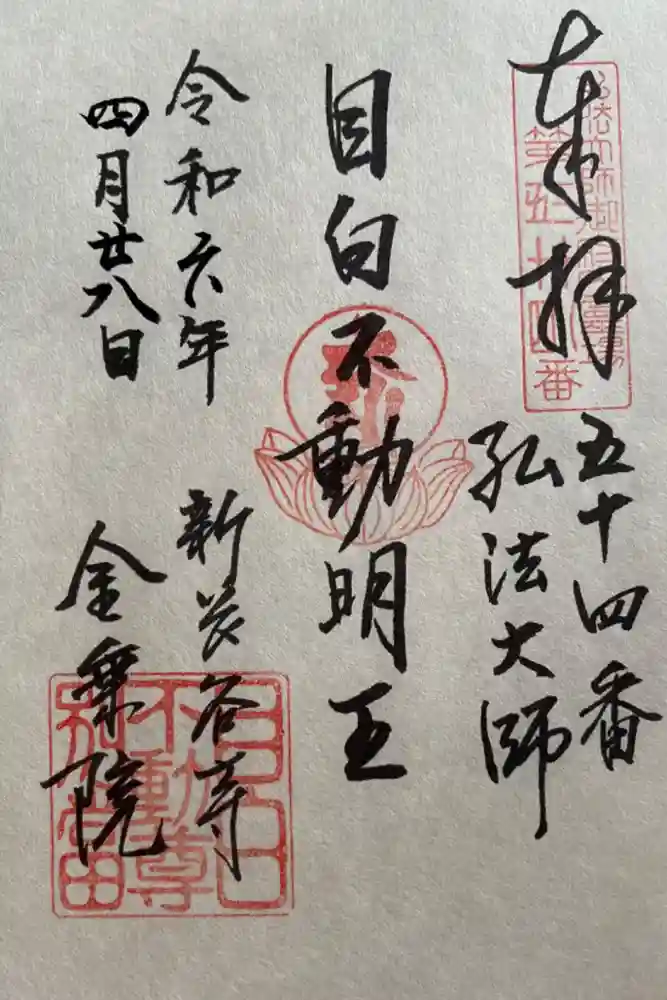 奉拝
五十四番
弘法大師
目白不動明王
令和六年
四月廿八日
新長谷寺
金乗院
第五十四番